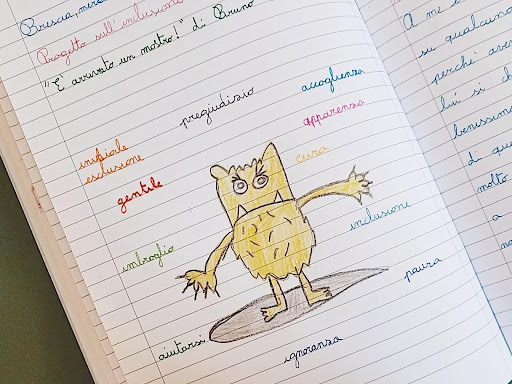 Brescia, merc
Progetto sull'inclusione
"È arrivato un mostro!" di Bruno
pregiudizio
accoglienza
apparenza
esclusione
cura
gentile
inclusione
imbroglio
paura
aiutarsi
ignoranza
A me è
su qualcuno
perché aver
lui si ch
benissimo
di que
molto
a